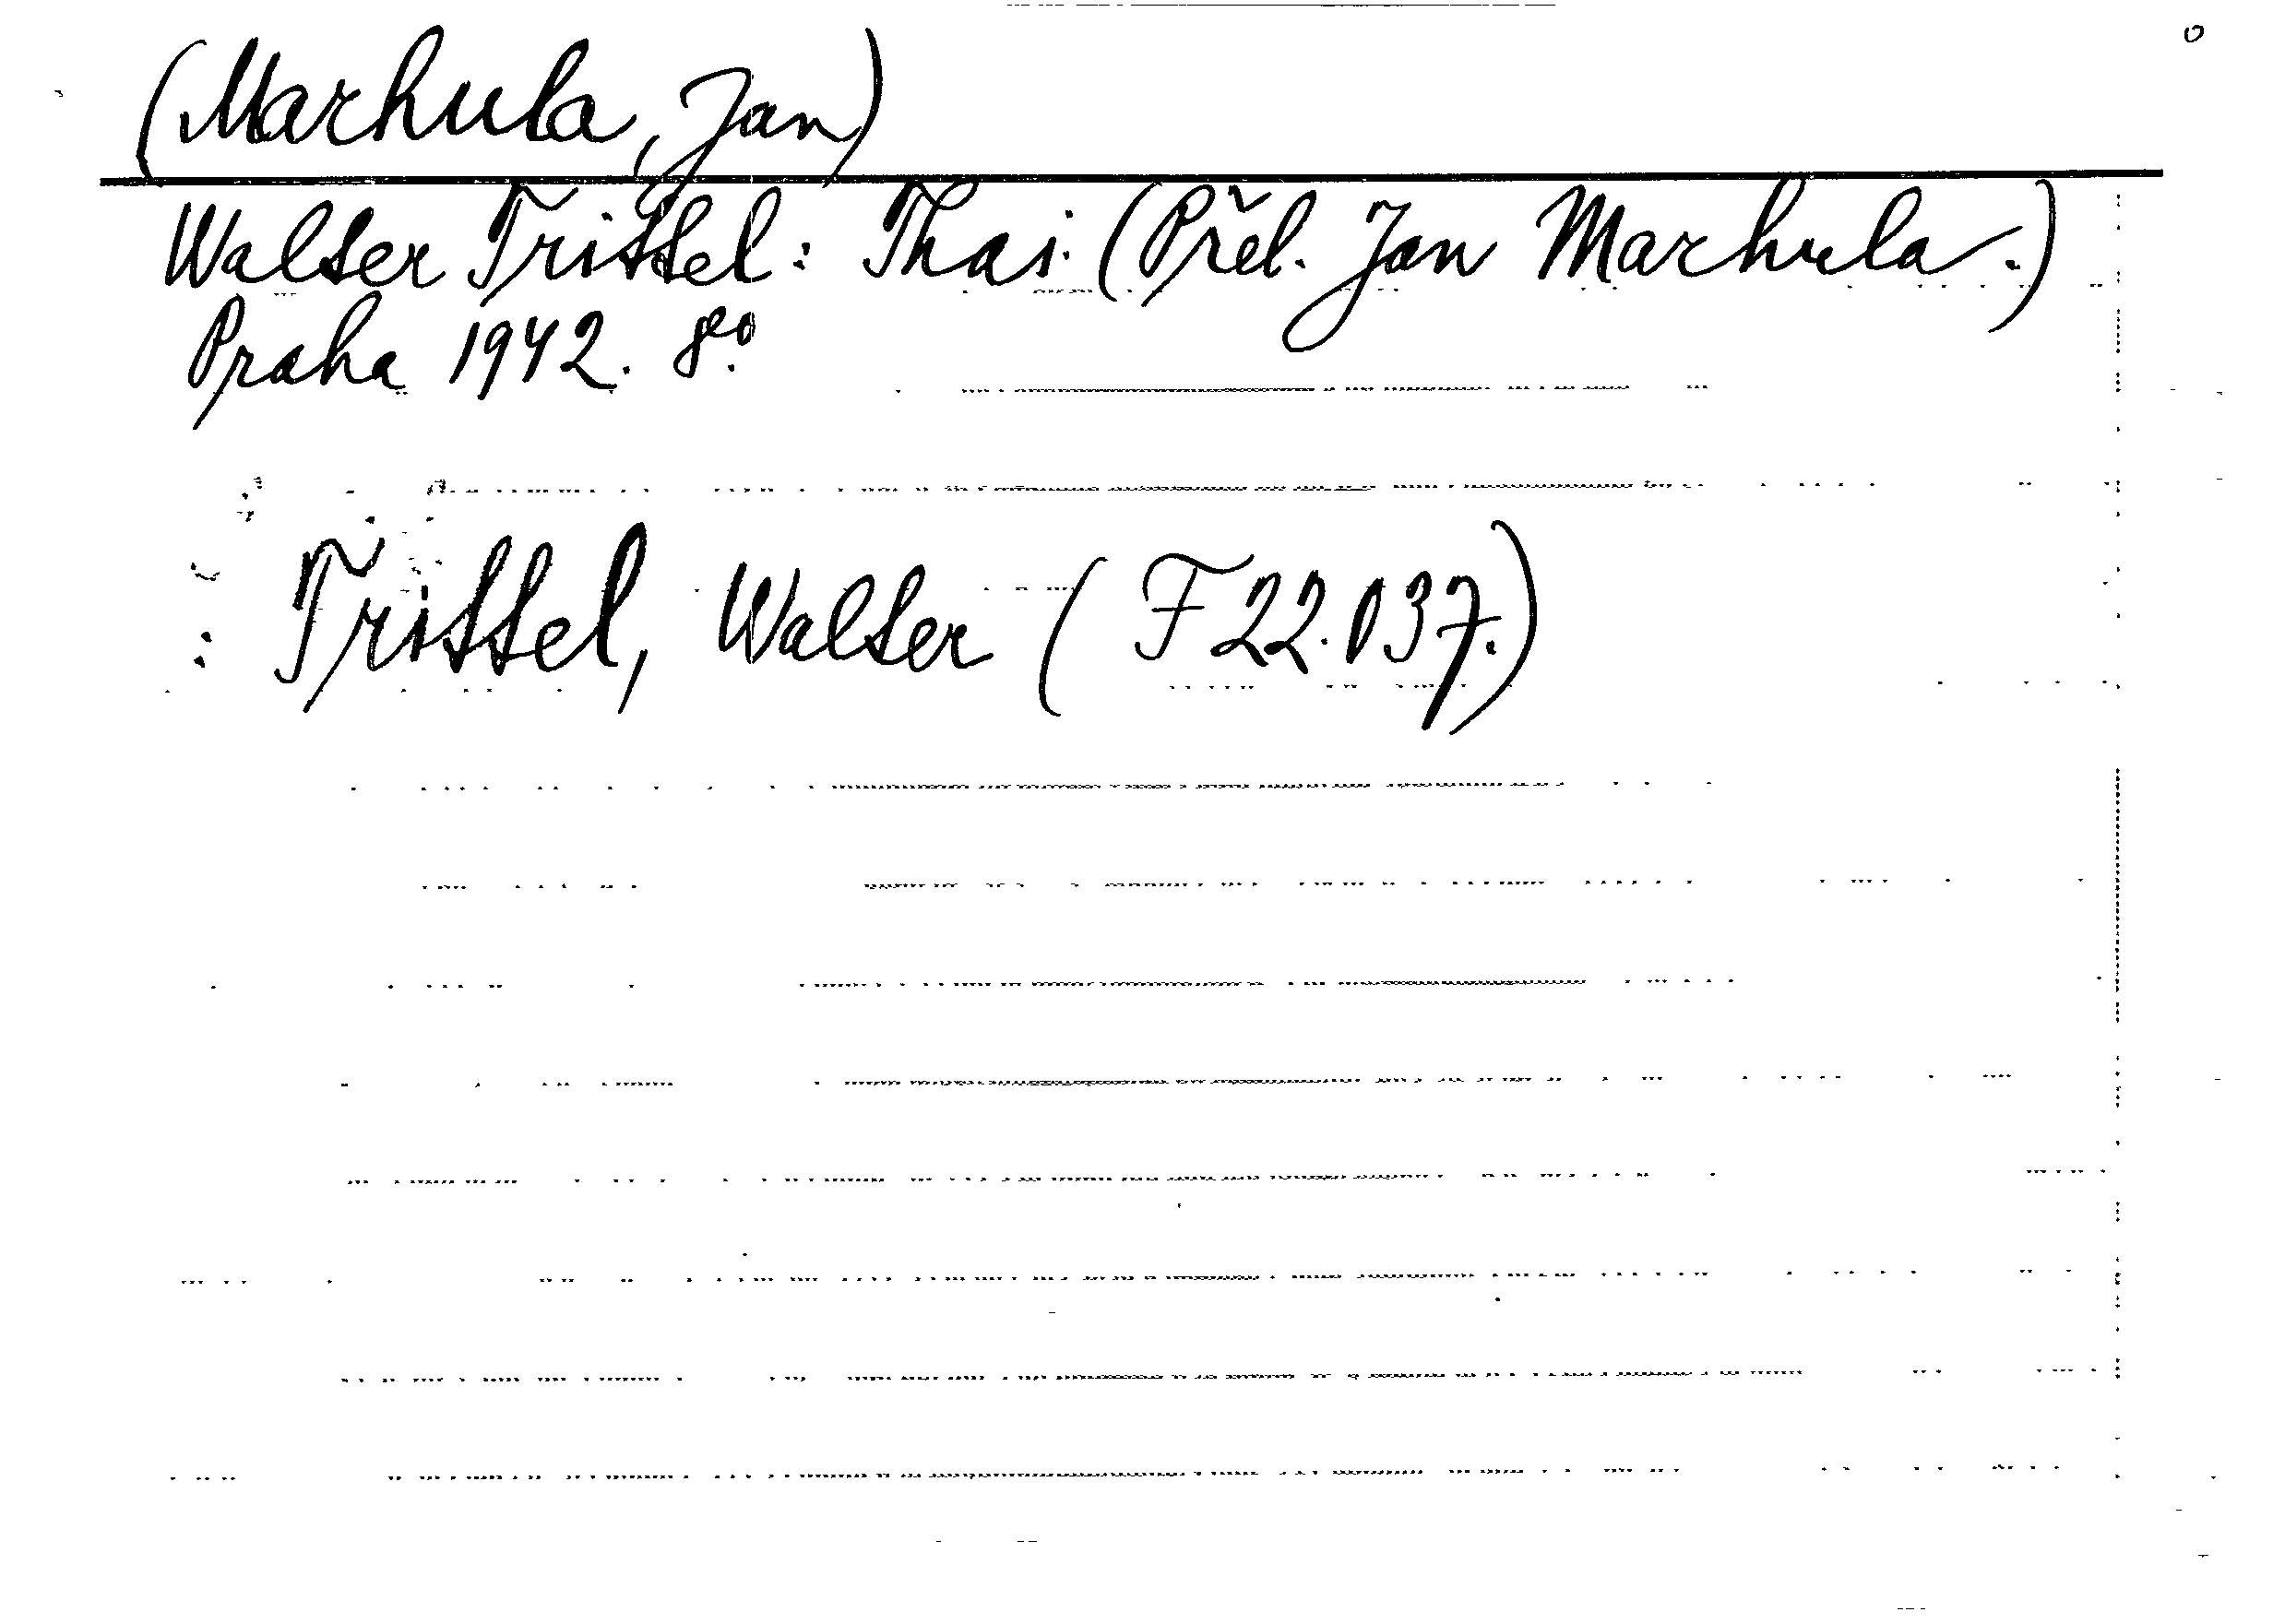 (Marhula, Jan)
Walter Trittel: Thai. (Přel. Jan Marhula.)
Praha 1942. 8°.
Trittel, Walter (F 22.037.)